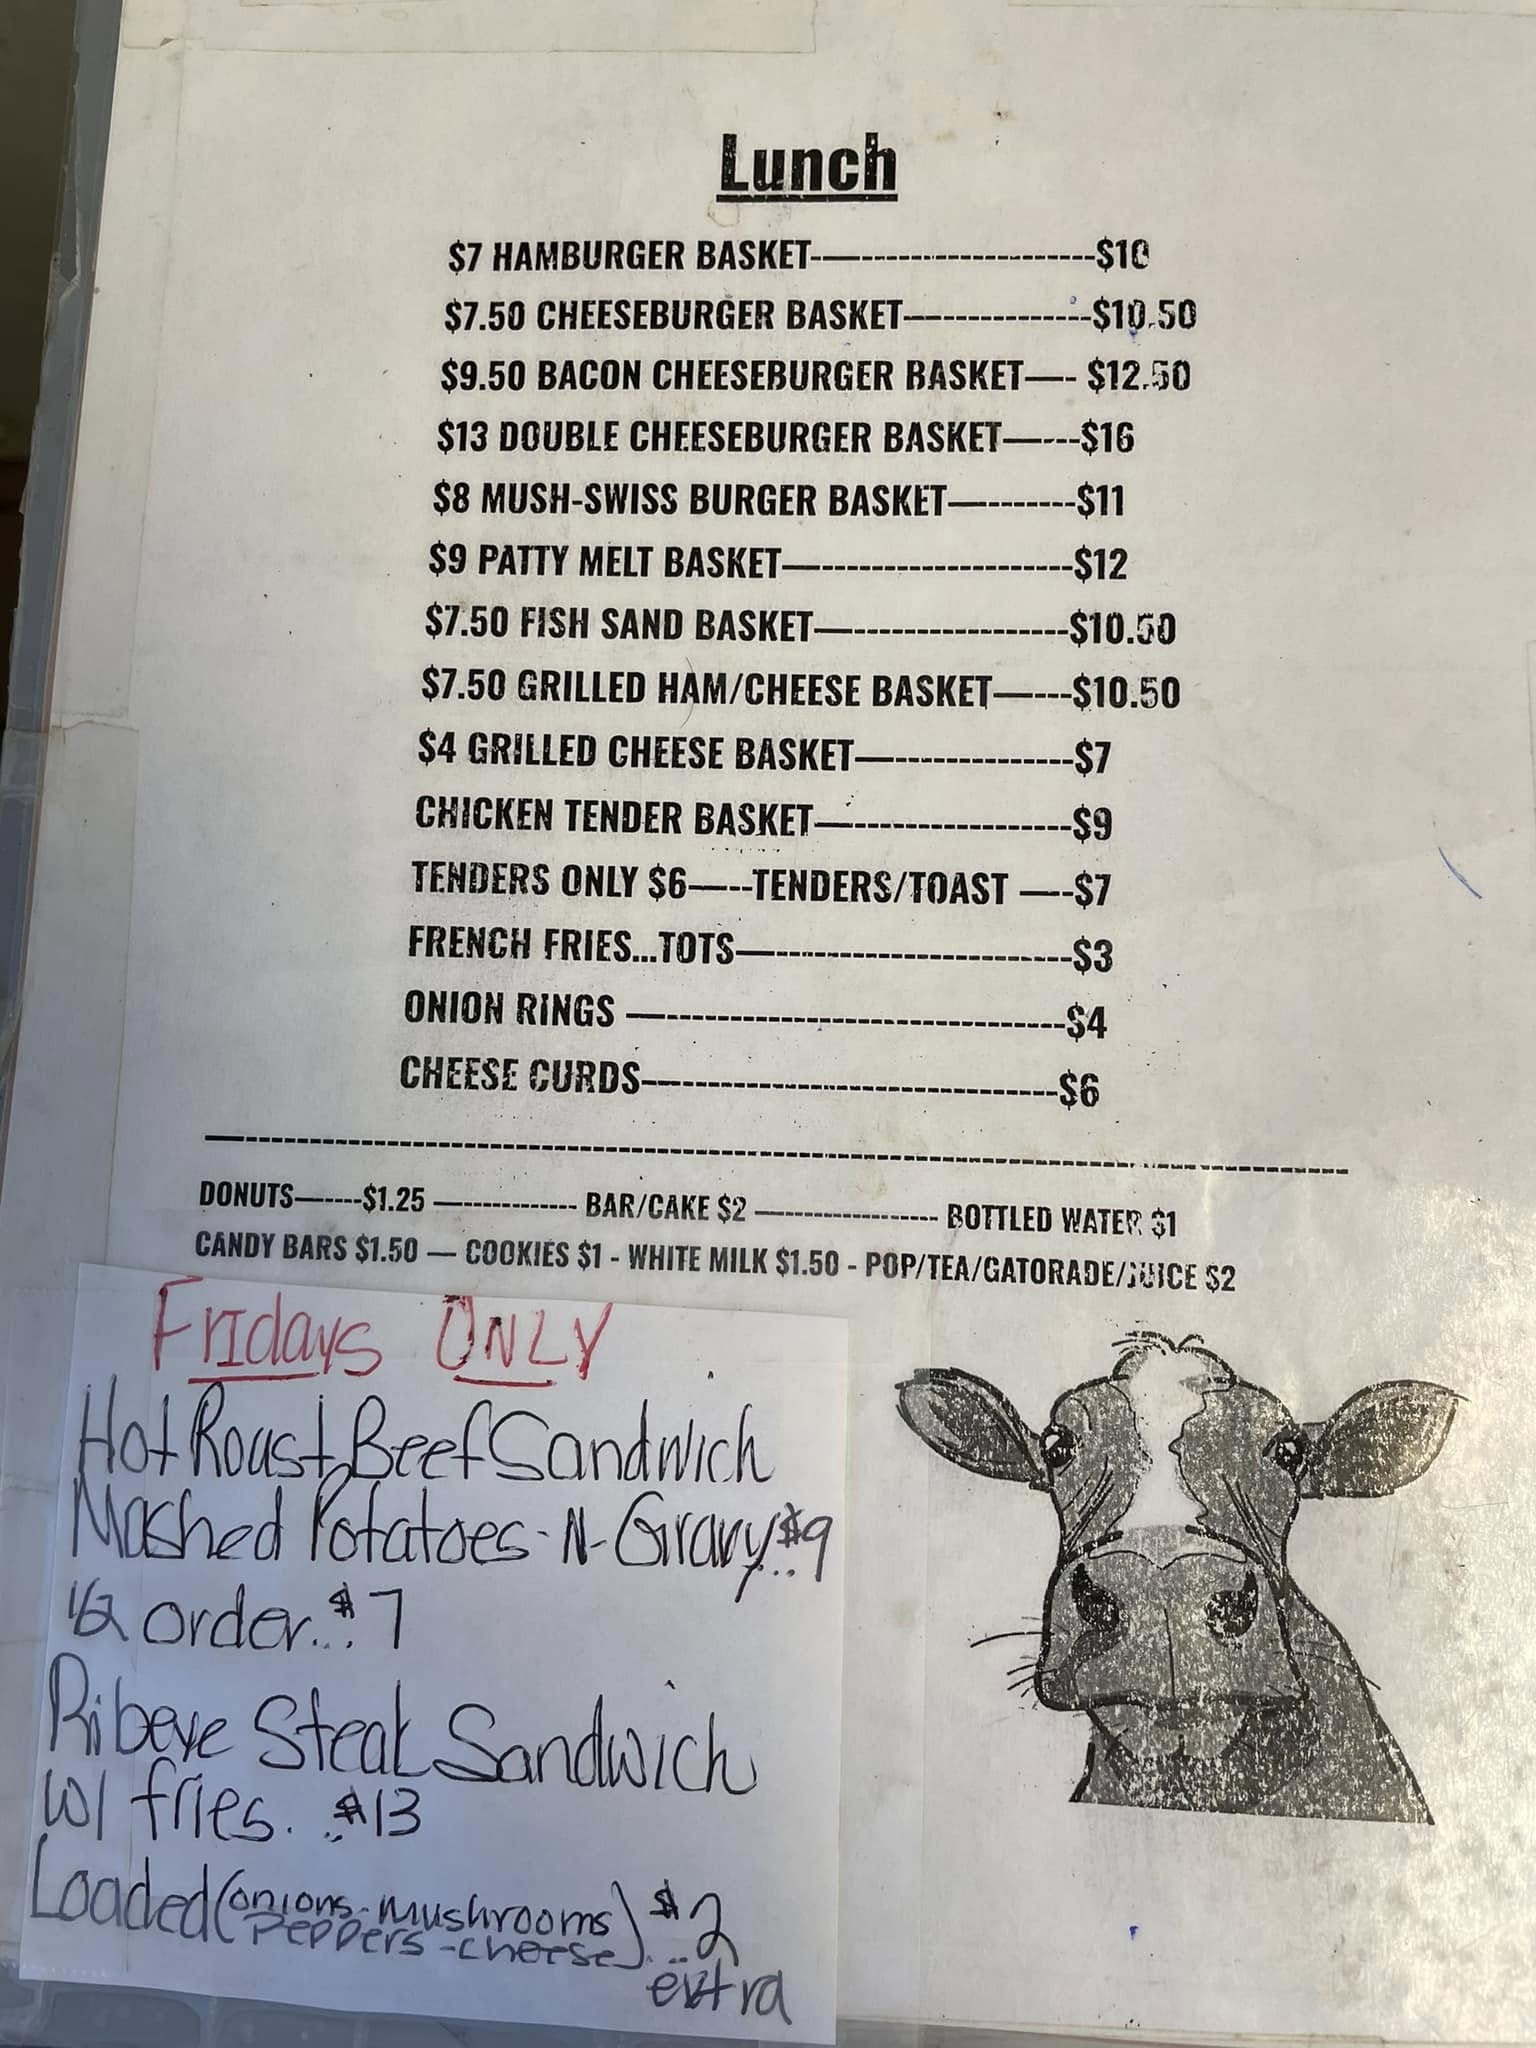 Lunch
$7 HAMBURGER BASKET-----------------------$10
$7.50 CHEESEBURGER BASKET---------------$10.50
$9.50 BACON CHEESEBURGER BASKET---- $12.50
$13 DOUBLE CHEESEBURGER BASKET-----$16
$8 MUSH-SWISS BURGER BASKET----------$11
$9 PATTY MELT BASKET-----------------------$12
$7.50 FISH SAND BASKET--------------------$10.50
$7.50 GRILLED HAM/CHEESE BASKET-----$10.50
$4 GRILLED CHEESE BASKET----------------$7
CHICKEN TENDER BASKET-------------------$9
TENDERS ONLY $6----TENDERS/TOAST ----$7
FRENCH FRIES...TOTS--------------------------$3
ONION RINGS ----------------------------------$4
CHEESE CURDS---------------------------------$6
DONUTS------$1.25 ------------- BAR/CAKE $2 ------------------- BOTTLED WATER $1
CANDY BARS $1.50 — COOKIES $1 - WHITE MILK $1.50 - POP/TEA/GATORADE/JUICE $2
Fridays ONLY
Hot Roast Beef Sandwich
Mashed Potatoes-N-Gravy...$9
1/2 order...$7
Ribeye Steak Sandwich
w/ fries...$13
Loaded (onions-mushrooms
peppers-cheese)...$2
extra